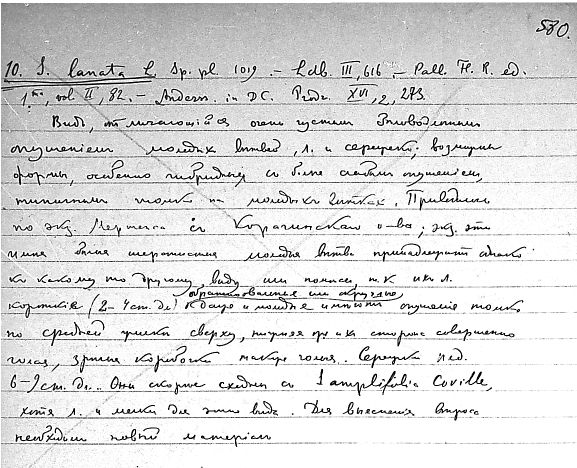 580.
10. S. lanata L. Sp. pl. 1019. – Ldb. III, 616. – Pall. Fl. R. ed.
1ma, vol II, 82. – Anders. in DC. Prodr. XVI, 2, 273.
Видъ, отличающійся очень густымъ
опушеніем молодых ветвей, л. и сережек; возможны
формы, особенно гибридныя съ более слабым опушеніем,
типичным только на молодых ветках. Приводим
по экз. Мертенса съ Карагинскаго о-ва; экз. эти
молодыя ветви принадлежит однако
к какому то другому виду или помеси т. к. их л.
обратнояйцевидные или округлые
короткіе (2–4 cm. дл.) и молодые имеют опушеніе только
по средней жилке сверху, нижняя же их сторона совершенно
голая, зрелыя коробочки также голыя. Сережки
6–9 cm. дл. Они скорее сходны съ S. amplifolia Coville,
хотя л. и мелки для этого вида. Для выясненія вопроса
необходим новый матеріал